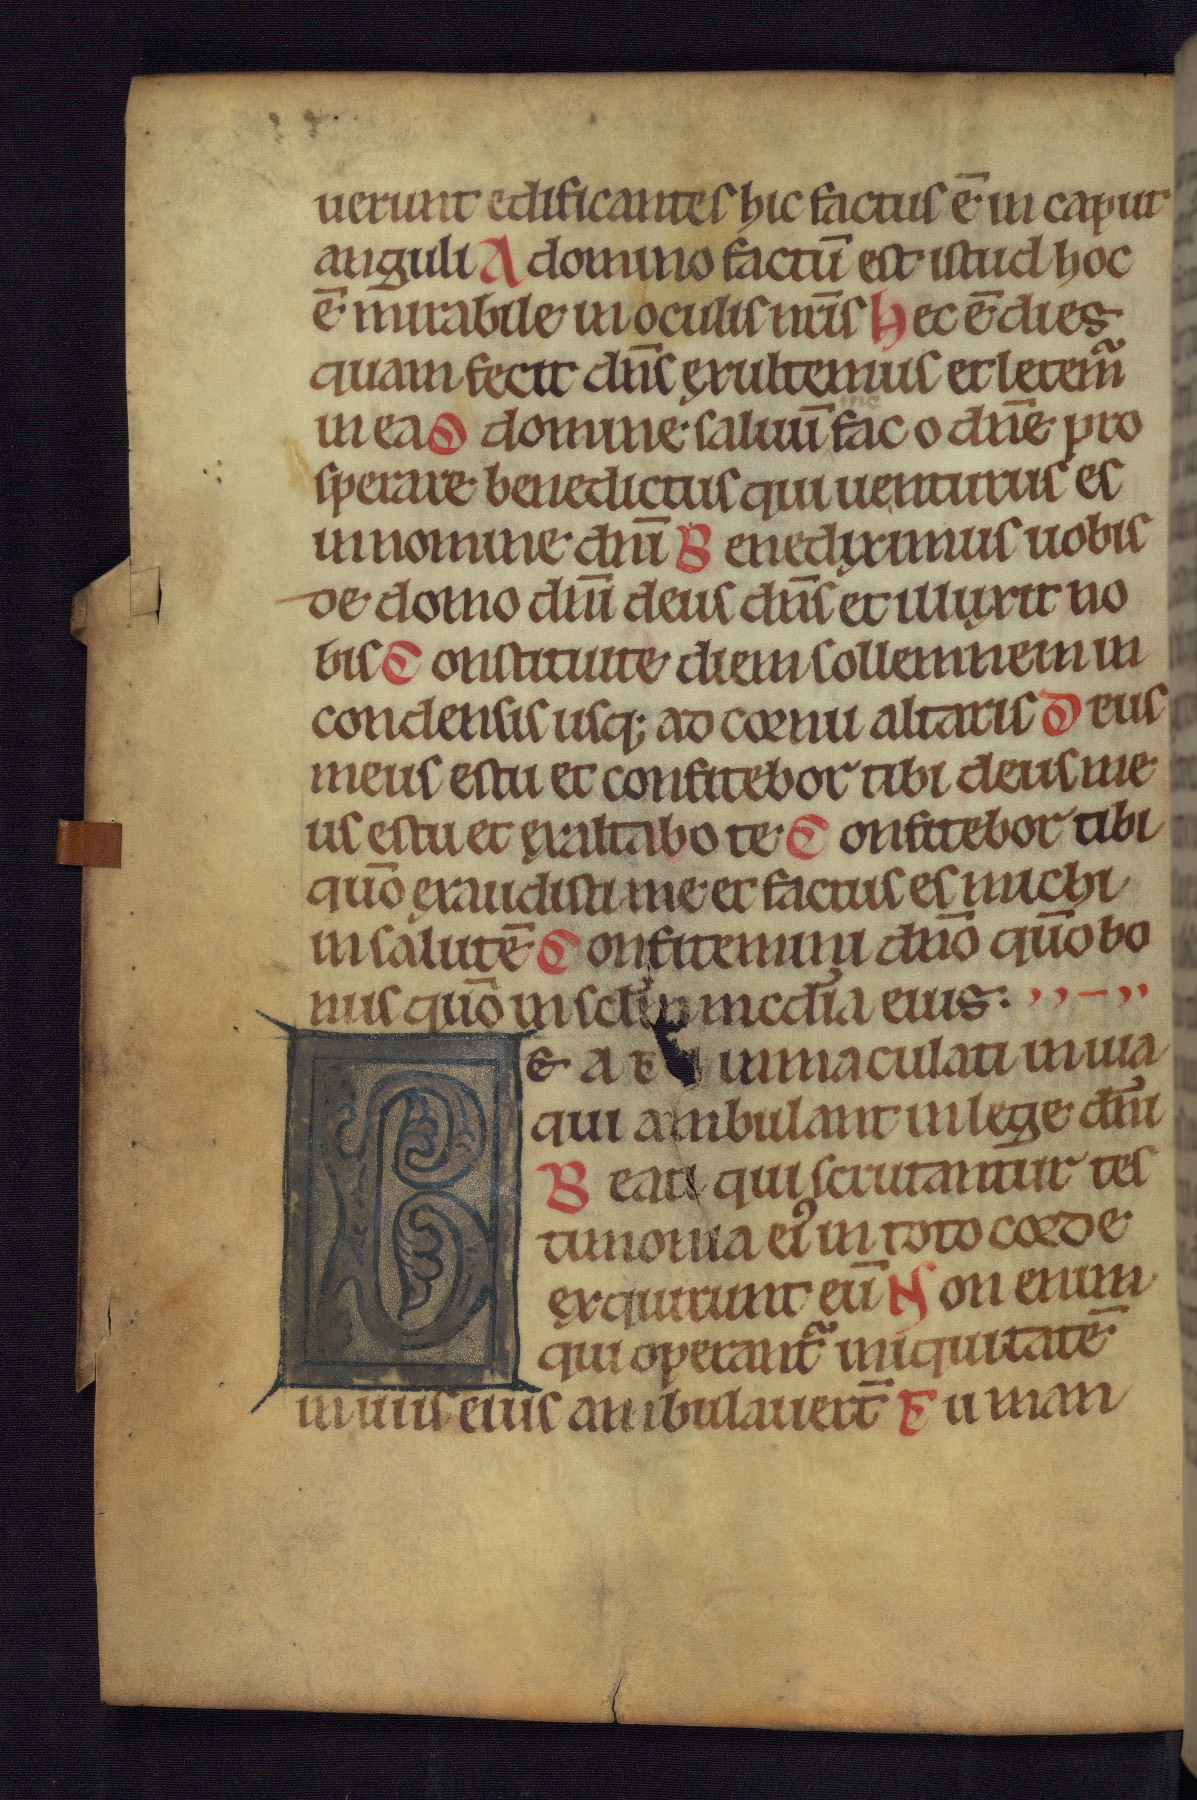 uerunt edificantes hic factus ē in caput
anguli A domino factū est istud hoc
ē mirabile in oculis nr̄is Hec ē dies
quam fecit dn̄s exultemus et letem᷑
in ea O domine saluū me fac o dn̄e pro
sperare benedictus qui uenturus es
in nomine dn̄i Benediximus uobis
de domo dn̄i deus dn̄s et illuxit no
bis Constituite diem sollemnem in
condensis usq; ad cornu altaris Deus
meus es tu et confitebor tibi deus me
us es tu et exaltabo te Confitebor tibi
quō exaudisti me et factus es michi
in salutē Confitemini dn̄o quō bo
nus quō in sclm mcdia eius:
BEATI inmaculati in uia
qui ambulant in lege dn̄i
Beati qui scrutantur tes
timonia ei᾽ in toto corde
exquirunt eū Non enim
qui operant᷑ iniquitatē
in uiis eius ambulauert̄ Tu man